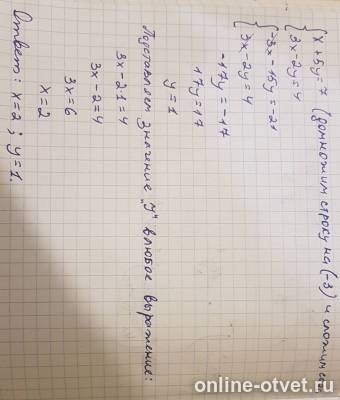 { x + 5y = 7 (домножим строку на (-3) и сложим
{ 3x - 2y = 4
{ -3x - 15y = -21
{ 3x - 2y = 4
-17y = -17
17y = 17
y = 1
Подставляем значение "y" в любое выражение:
3x - 2·1 = 4
3x - 2 = 4
3x = 6
x = 2
Ответ: x = 2; y = 1.
online-otvet.ru